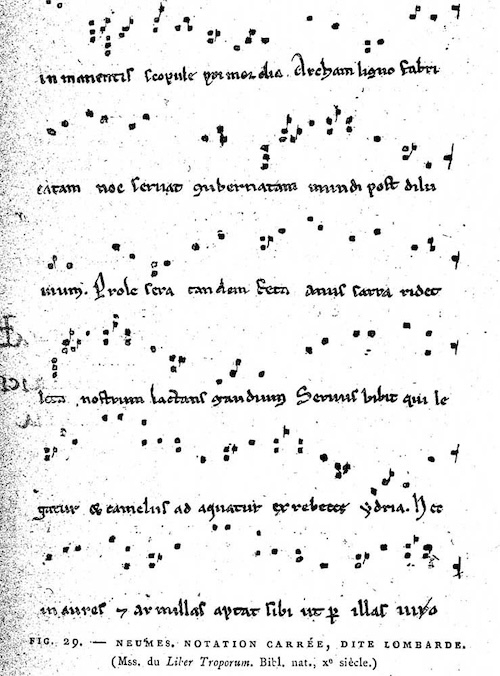 in manentis scopule primordia Archam ligno fabri
catam noe seruat gubernatam mundi post dilu
uium. Prole sera tandem feta anus sarra ridet
nostrum lactans gaudium Seruus bibit qui le
gatur & camelus ad aquatur ex rebecce ydria. Nec
in aures ⁊ armillas aptat sibi ut illas uiro
FIG. 29. — NEUMES. NOTATION CARRÉE, DITE LOMBARDE.
(Mss. du Liber Troporum. Bibl. nat., xe siècle.)